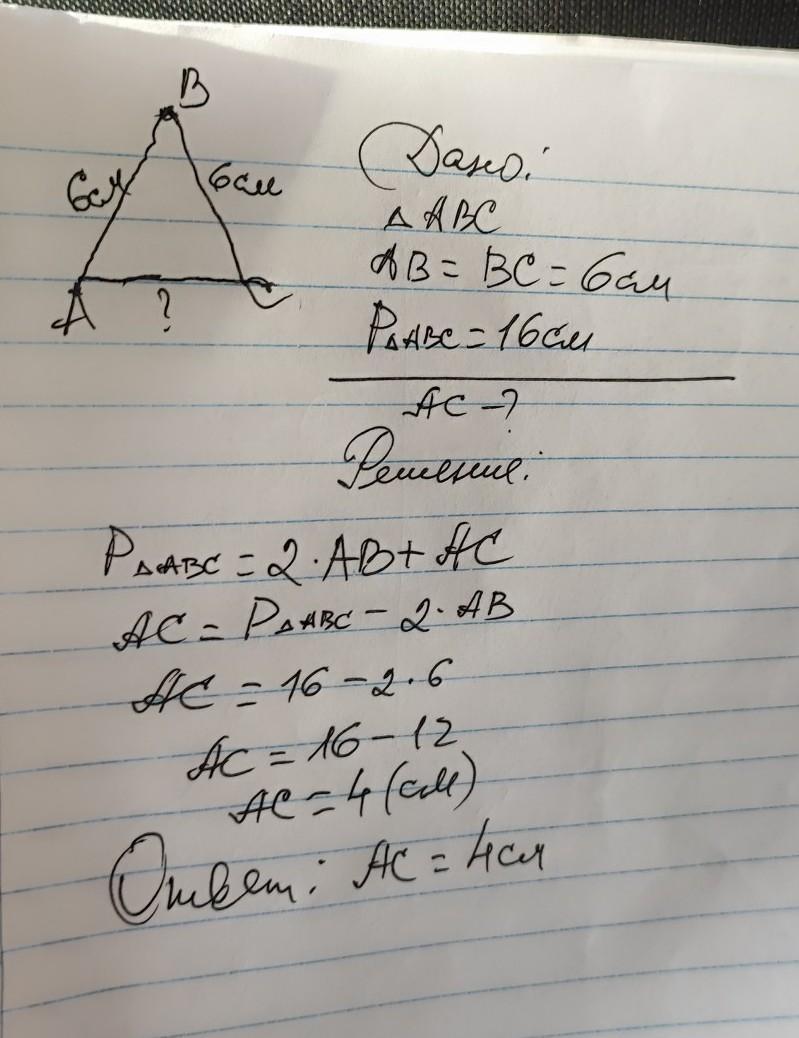 B
6см
6см
A
?
C
Дано:
△ABC
AB = BC = 6см
P△ABC = 16см
AC - ?
Решение:
P△ABC = 2·AB + AC
AC = P△ABC - 2·AB
AC = 16 - 2·6
AC = 16 - 12
AC = 4 (см)
Ответ: AC = 4см